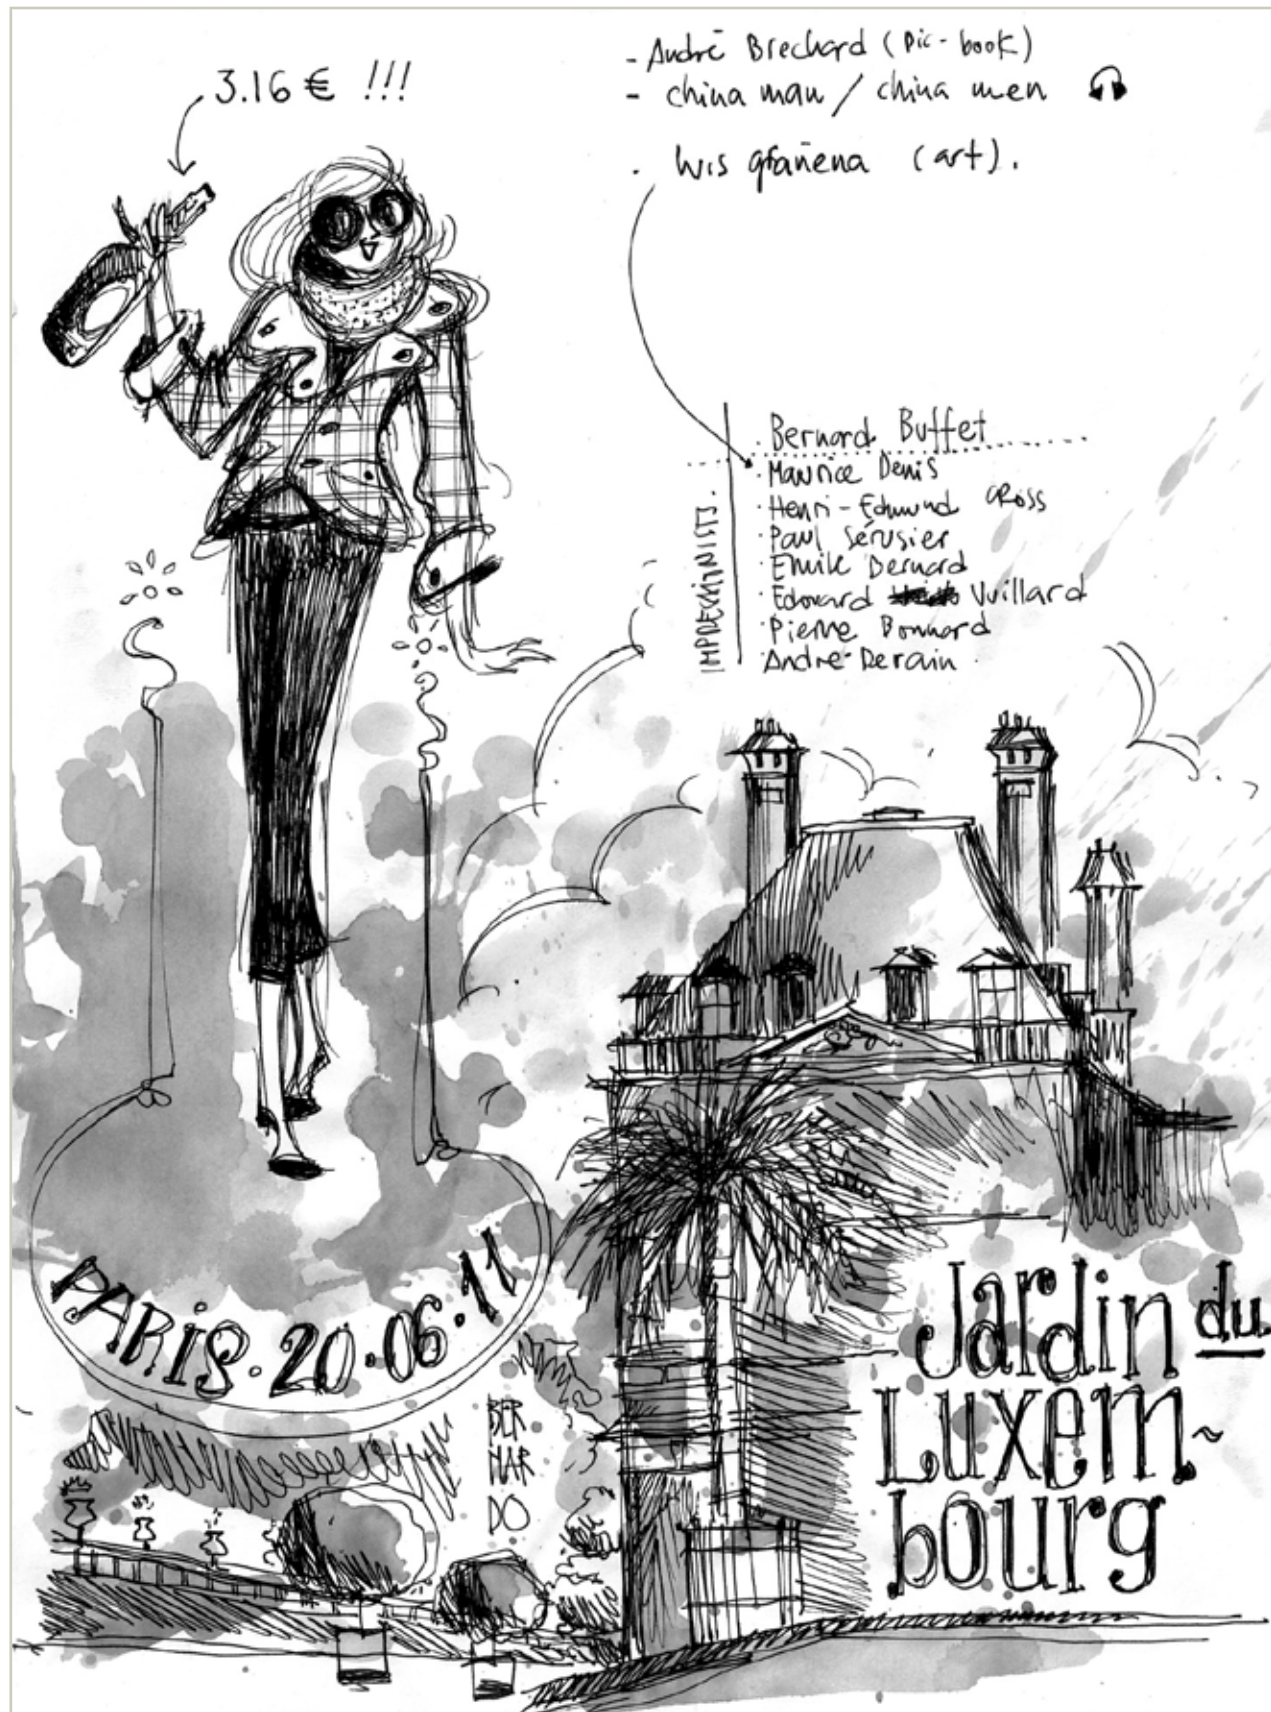 3.16 € !!!
- André Brechard (pic-book)
- china man / china men
. luis grañena (art).
IMPRESSIONISTS.
· Bernard Buffet
· Maurice Denis
· Henri-Edmund CROSS
· Paul Sérusier
· Emile Bernard
· Edouard Vuillard
· Pierre Bonnard
· André Derain
PARIS · 20 · 06 · 11
BER
NAR
DO
Jardin du
Luxem~
bourg